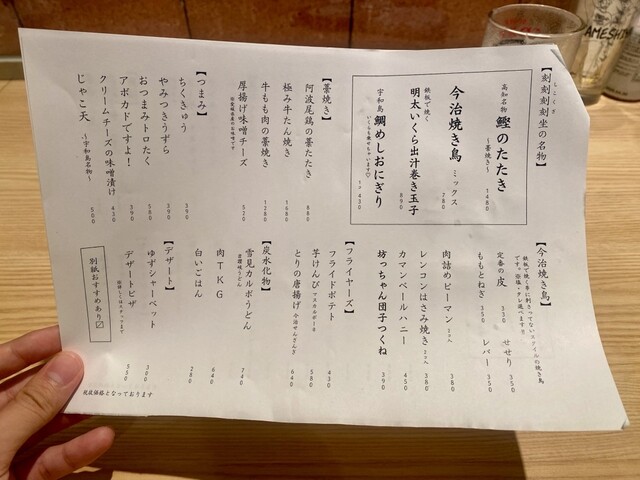 【刻刻刻刻坐の名物】
しこくざ
高知名物 鰹のたたき ～藁焼き～ 1480
今治焼き鳥 ミックス 780
鉄板で焼く
明太いくら出汁巻き玉子 890
宇和島 鯛めしおにぎり 1コ 430
いくらも乗せちゃいます♡
【藁焼き】
阿波尾鶏の藁たたき 880
極み牛たん焼き 1680
牛もも肉の藁焼き 1280
厚揚げ味噌チーズ 520
【つまみ】
ちくきゅう 390
やみつきうずら 390
おつまみトロたく 580
アボカドですよ! 390
クリームチーズの味噌漬け 430
じゃこ天 ～宇和島名物～ 500
【今治焼き鳥】
定番の皮 330
せせり 350
ももとねぎ 350
レバー 350
肉詰めピーマン 2コ入 380
レンコンはさみ焼き 2コ入 380
カマンベールハニー 450
坊っちゃん団子つくね 390
【フライヤーズ】
フライドポテト 430
芋けんぴ マスカルポーネ 580
とりの唐揚げ 今治せんざんき 640
【炭水化物】
雪見カルボうどん 740
肉TKG 640
白いごはん 280
【デザート】
ゆずシャーベット 300
デザートピザ 550
別紙おすすめあり
税抜価格となっております
AMESHI